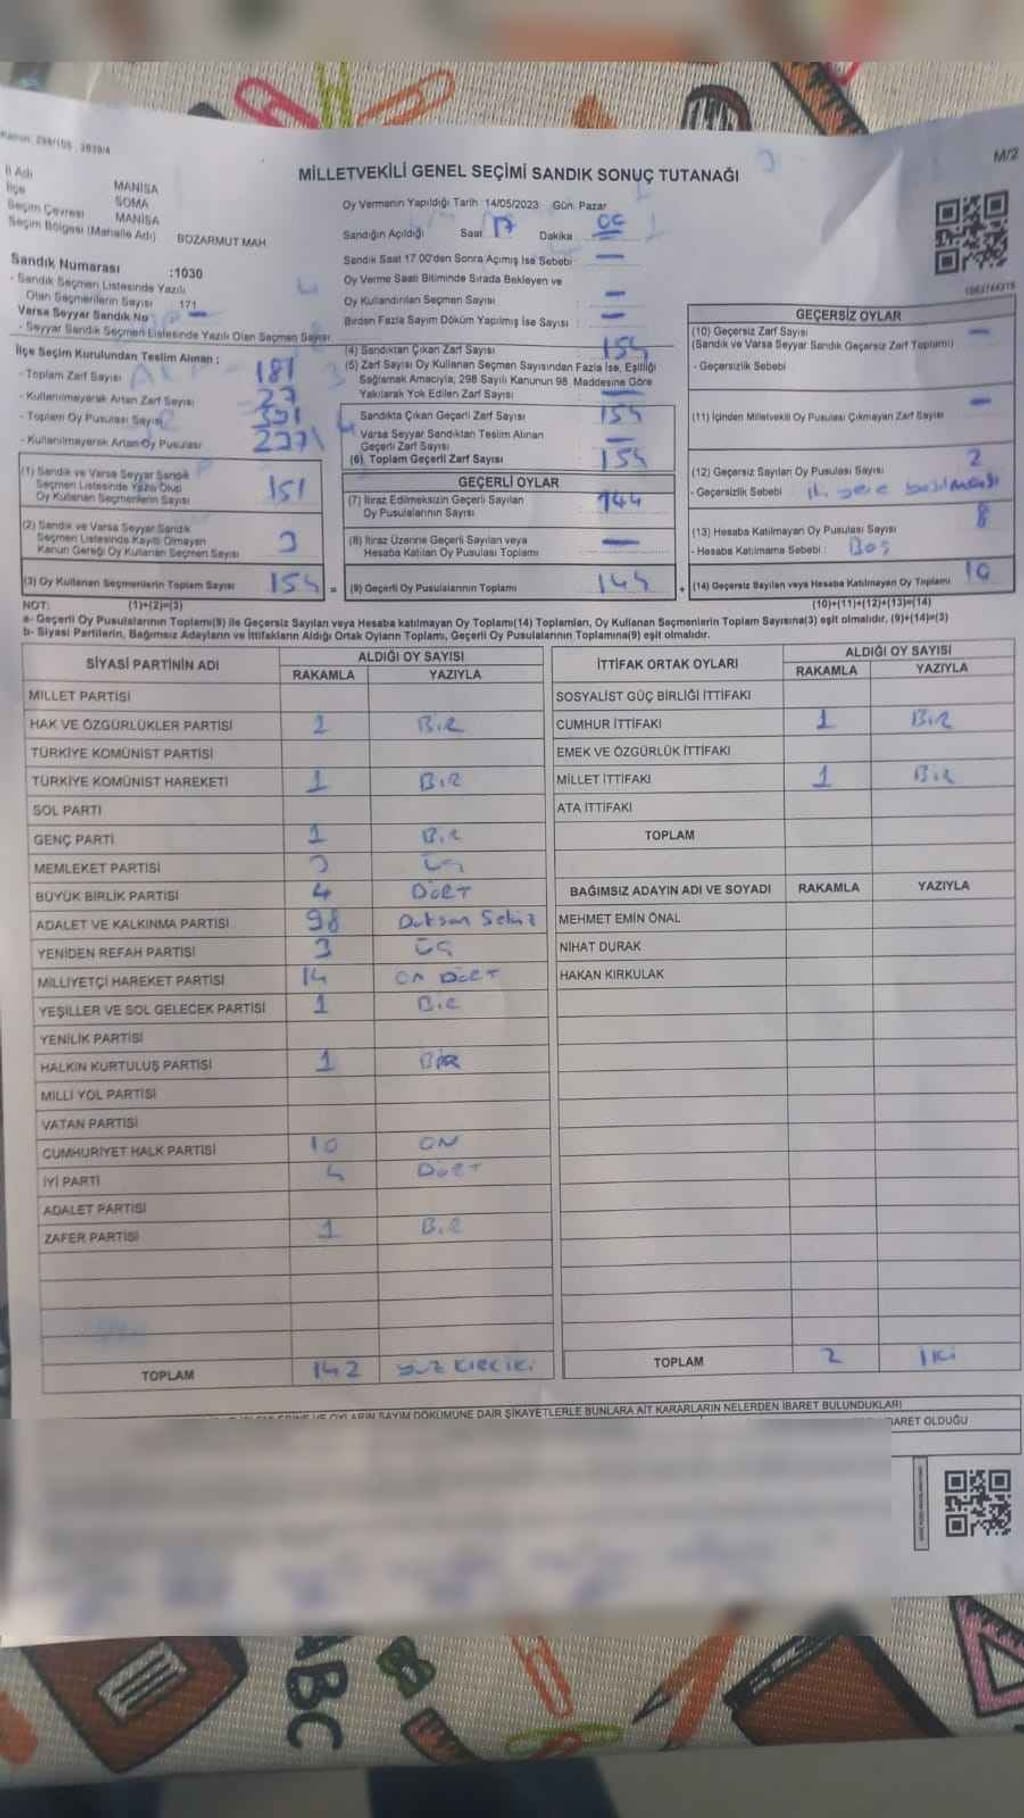 MİLLETVEKİLİ GENEL SEÇİMİ SANDIK SONUÇ TUTANAĞI
M/2
İl Adı MANİSA
İlçe SOMA
Seçim Çevresi MANİSA
Seçim Bölgesi (Mahalle Adı) BOZARMUT MAH
Sandık Numarası :1030
- Sandık Seçmen Listesinde Yazılı
Olan Seçmenlerin Sayısı 171
Varsa Seyyar Sandık No —
- Seyyar Sandık Seçmen Listesinde Yazılı Olan Seçmen Sayısı
İlçe Seçim Kurulundan Teslim Alınan :
- Toplam Zarf Sayısı 181
- Kullanılmayarak Artan Zarf Sayısı 27
- Toplam Oy Pusulası Sayısı
- Kullanılmayarak Artan Oy Pusulası
(1) Sandık ve Varsa Seyyar Sandık
Seçmen Listesinde Yazılı Olup
Oy Kullanan Seçmenlerin Sayısı 151
(2) Sandık ve Varsa Seyyar Sandık
Seçmen Listesinde Kayıtlı Olmayan
Kanun Gereği Oy Kullanan Seçmen Sayısı 3
(3) Oy Kullanan Seçmenlerin Toplam Sayısı 154
Oy Vermenin Yapıldığı Tarih 14/05/2023 Gün Pazar
Sandığın Açıldığı Saat 17 Dakika 00
Sandık Saat 17 00'den Sonra Açılmış İse Sebebi —
Oy Verme Saati Bitiminde Sırada Bekleyen ve
Oy Kullandırılan Seçmen Sayısı —
Birden Fazla Sayım Döküm Yapılmış İse Sayısı —
(4) Sandıktan Çıkan Zarf Sayısı 154
(5) Zarf Sayısı Oy Kullanan Seçmen Sayısından Fazla İse, Eşitliği
Sağlamak Amacıyla, 298 Sayılı Kanunun 98. Maddesine Göre
Yakılarak Yok Edilen Zarf Sayısı —
Sandıkta Çıkan Geçerli Zarf Sayısı 154
Varsa Seyyar Sandıktan Teslim Alınan
Geçerli Zarf Sayısı —
(6) Toplam Geçerli Zarf Sayısı 154
GEÇERLİ OYLAR
(7) İtiraz Edilmeksizin Geçerli Sayılan
Oy Pusulalarının Sayısı 144
(8) İtiraz Üzerine Geçerli Sayılan veya
Hesaba Katılan Oy Pusulası Toplamı —
= (9) Geçerli Oy Pusulalarının Toplamı 144
GEÇERSİZ OYLAR
(10) Geçersiz Zarf Sayısı —
(Sandık ve Varsa Seyyar Sandık Geçersiz Zarf Toplamı)
- Geçersizlik Sebebi
(11) İçinden Milletvekili Oy Pusulası Çıkmayan Zarf Sayısı —
(12) Geçersiz Sayılan Oy Pusulası Sayısı 2
- Geçersizlik Sebebi
(13) Hesaba Katılmayan Oy Pusulası Sayısı 8
- Hesaba Katılmama Sebebi : Boş
+ (14) Geçersiz Sayılan veya Hesaba Katılmayan Oy Toplamı 10
NOT: (1)+(2)=(3)
(10)+(11)+(12)+(13)=(14)
a- Geçerli Oy Pusulalarının Toplamı(9) ile Geçersiz Sayılan veya Hesaba katılmayan Oy Toplamı(14) Toplamları, Oy Kullanan Seçmenlerin Toplam Sayısına(3) eşit olmalıdır. (9)+(14)=(3)
b- Siyasi Partilerin, Bağımsız Adayların ve İttifakların Aldığı Ortak Oyların Toplamı, Geçerli Oy Pusulalarının Toplamına(9) eşit olmalıdır.
SİYASİ PARTİNİN ADI ALDIĞI OY SAYISI
RAKAMLA YAZIYLA
MİLLET PARTİSİ
HAK VE ÖZGÜRLÜKLER PARTİSİ 1 Bir
TÜRKİYE KOMÜNİST PARTİSİ
TÜRKİYE KOMÜNİST HAREKETİ 1 Bir
SOL PARTİ
GENÇ PARTİ 1 Bir
MEMLEKET PARTİSİ 3 üç
BÜYÜK BİRLİK PARTİSİ 4 Dört
ADALET VE KALKINMA PARTİSİ 98 Doksan Sekiz
YENİDEN REFAH PARTİSİ 3 üç
MİLLİYETÇİ HAREKET PARTİSİ 14 on Dört
YEŞİLLER VE SOL GELECEK PARTİSİ 1 Bir
YENİLİK PARTİSİ
HALKIN KURTULUŞ PARTİSİ 1 Bir
MİLLİ YOL PARTİSİ
VATAN PARTİSİ
CUMHURİYET HALK PARTİSİ 10 ON
İYİ PARTİ 4 Dört
ADALET PARTİSİ
ZAFER PARTİSİ 1 Bir
TOPLAM 142 yüz kırk iki
İTTİFAK ORTAK OYLARI ALDIĞI OY SAYISI
RAKAMLA YAZIYLA
SOSYALİST GÜÇ BİRLİĞİ İTTİFAKI
CUMHUR İTTİFAKI 1 Bir
EMEK VE ÖZGÜRLÜK İTTİFAKI
MİLLET İTTİFAKI 1 Bir
ATA İTTİFAKI
TOPLAM
BAĞIMSIZ ADAYIN ADI VE SOYADI RAKAMLA YAZIYLA
MEHMET EMİN ÖNAL
NİHAT DURAK
HAKAN KIRKULAK
TOPLAM 2 iki
OYLARIN SAYIM DÖKÜMÜNE DAİR ŞİKAYETLERLE BUNLARA AİT KARARLARIN NELERDEN İBARET BULUNDUKLARI
OLDUĞU
ABC